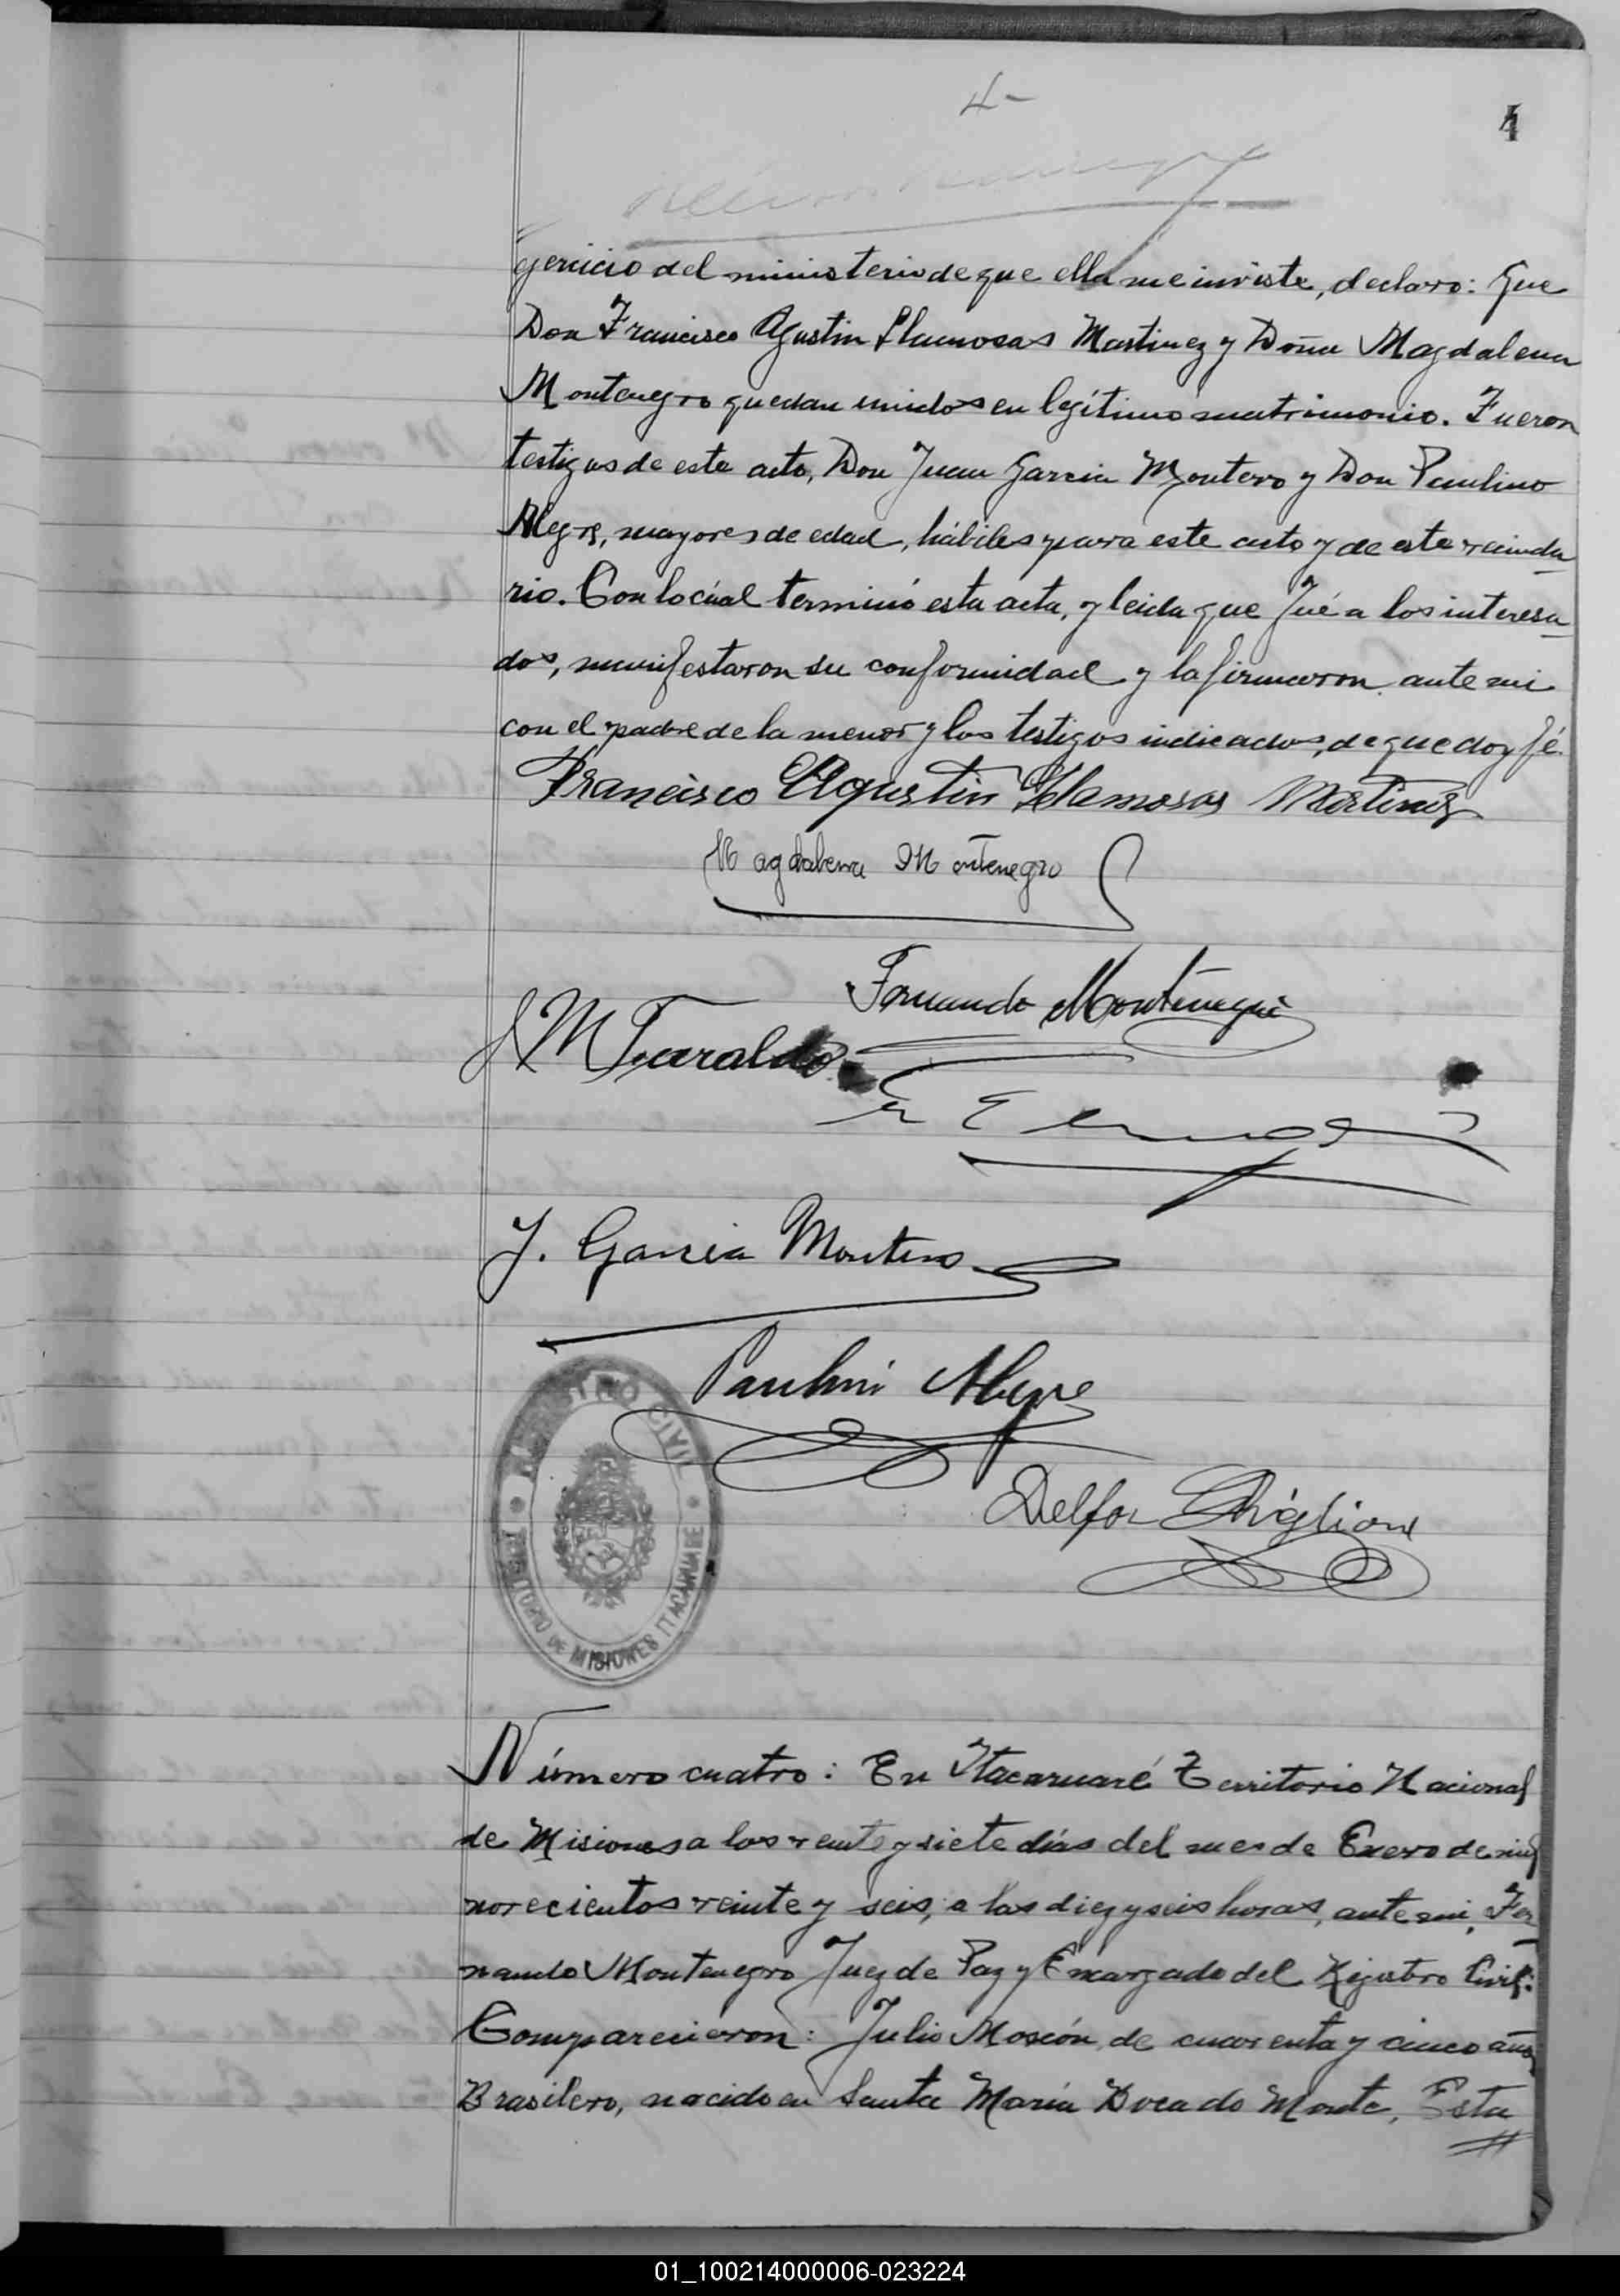 4-
4
ejercicio del ministerio de que ella me inviste, declaro: Que
Don Francisco Agustin Llamosas Martinez y Doña Magdalena
Montenegro quedan unidos en legítimo matrimonio. Fueron
testigos de este acto, Don Juan Garcia Montero y Don Paulino
Alegre, mayores de edad, hábiles para este acto y de este vecinda
rio. Con lo cúal terminó esta acta, y leida que fué a los interesa
dos, manifestaron su conformidad y la firmaron ante mi
con el padre de la menor y los testigos indicados, de que doy fé.
Francisco Agustin Llamosas Martinez
Magdalena Montenegro
Fernando Montenegro
M Faraldo
J. Garcia Montero
Paulino Alegre
Delfor Ghiglione
REGISTRO CIVIL
TERRITORIO DE MISIONES ITACARUARE
Número cuatro: En Itacaruaré Territorio Nacional
de Misiones a los veinte y siete días del mes de Enero de mil
novecientos veinte y seis, a las diez y seis horas, ante mi, Fer
nando Montenegro Juez de Paz y Encargado del Registro Civil:
Comparecieron: Julio Moscón, de cuarenta y cinco años
Brasilero, nacido en Santa María Boca do Monte, Esta
01_100214000006-023224